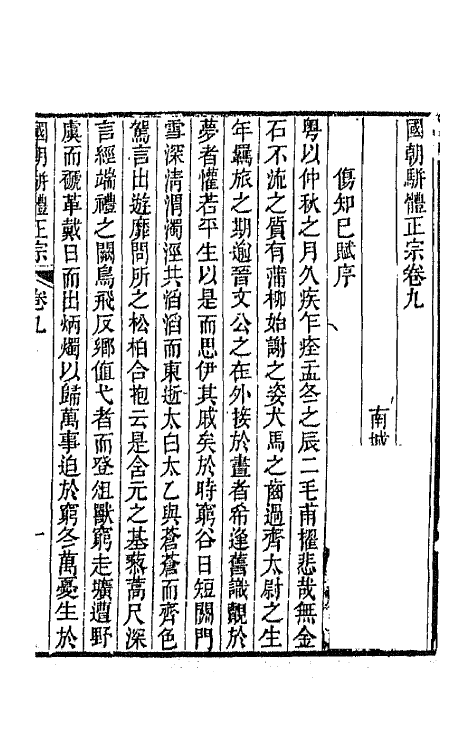 國朝駢體正宗卷九
南城
傷知己賦序
粵以仲秋之月久疾乍痊孟冬之辰二毛甫擢悲哉無金
石不流之質有蒲柳始謝之姿犬馬之齒過齊太尉之生
年羈旅之期逾晉文公之在外接於晝者希逢舊識覿於
夢者懽若平生以是而思伊其戚矣於時窮谷日短關門
雪深淸渭濁涇共滔滔而東逝太白太乙與蒼蒼而齊色
駕言出遊靡問所之松柏合抱云是含元之基藜蒿尺深
言經端禮之闕鳥飛反鄉値弋者而登俎獸窮走壙遭野
虞而褫革戴日而出炳燭以歸萬事迫於窮冬萬憂生於
國朝駢體正宗
卷九
一